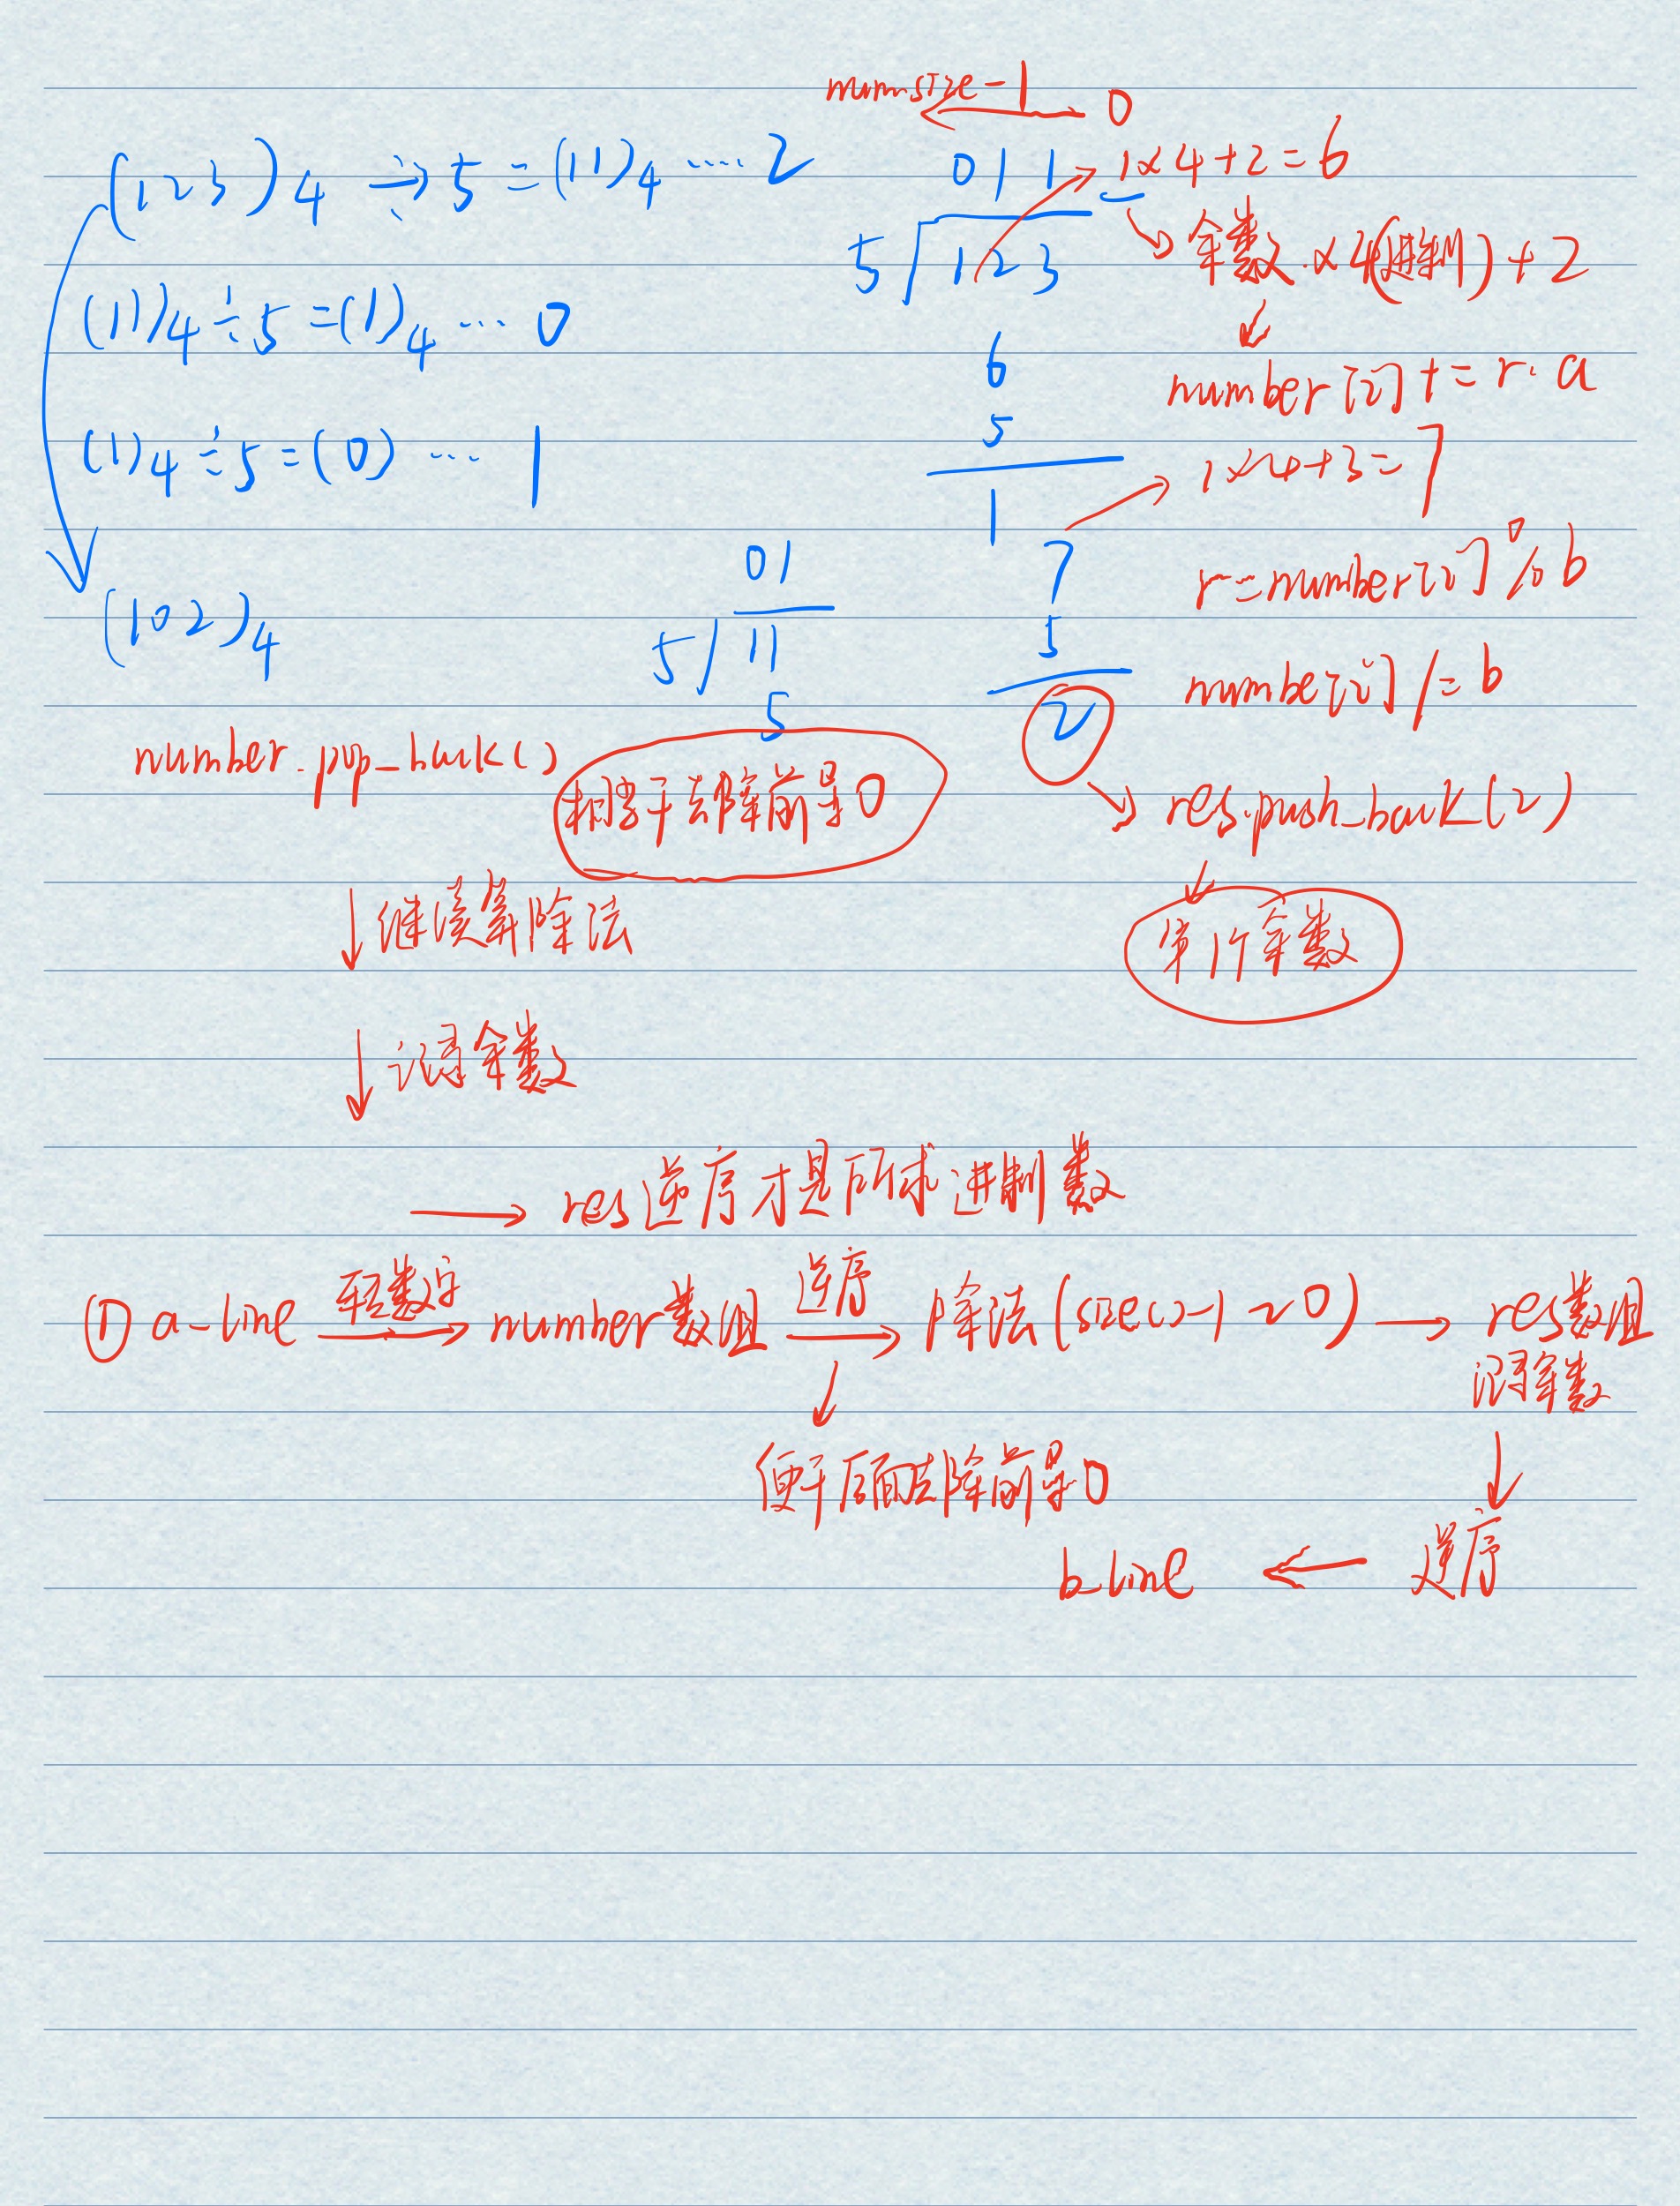 num.size-1 0
(123)4 ÷→ 5 = (11)4 ····· 2
011
1×4+2=6
5 123
余数×4(进制)+2
(11)4 ÷ 5 = (1)4 ··· 0
6
number[i] += r·a
5
(1)4 ÷ 5 = (0) ··· 1
1×4+3=7
1
01
7
r=number[i] % b
(102)4
5 11
5
5
numbe[i] /= b
2
number.pop_back()
相当于去除前导0
res.push_back(2)
↓继续算除法
第1个余数
↓记录余数
→ res逆序才是所求进制数
① a-line 转数字→ number数组 逆序→ 除法(size()-1 ~ 0) → res数组
记录余数
↓
便于后面去除前导0
b_line ← 逆序